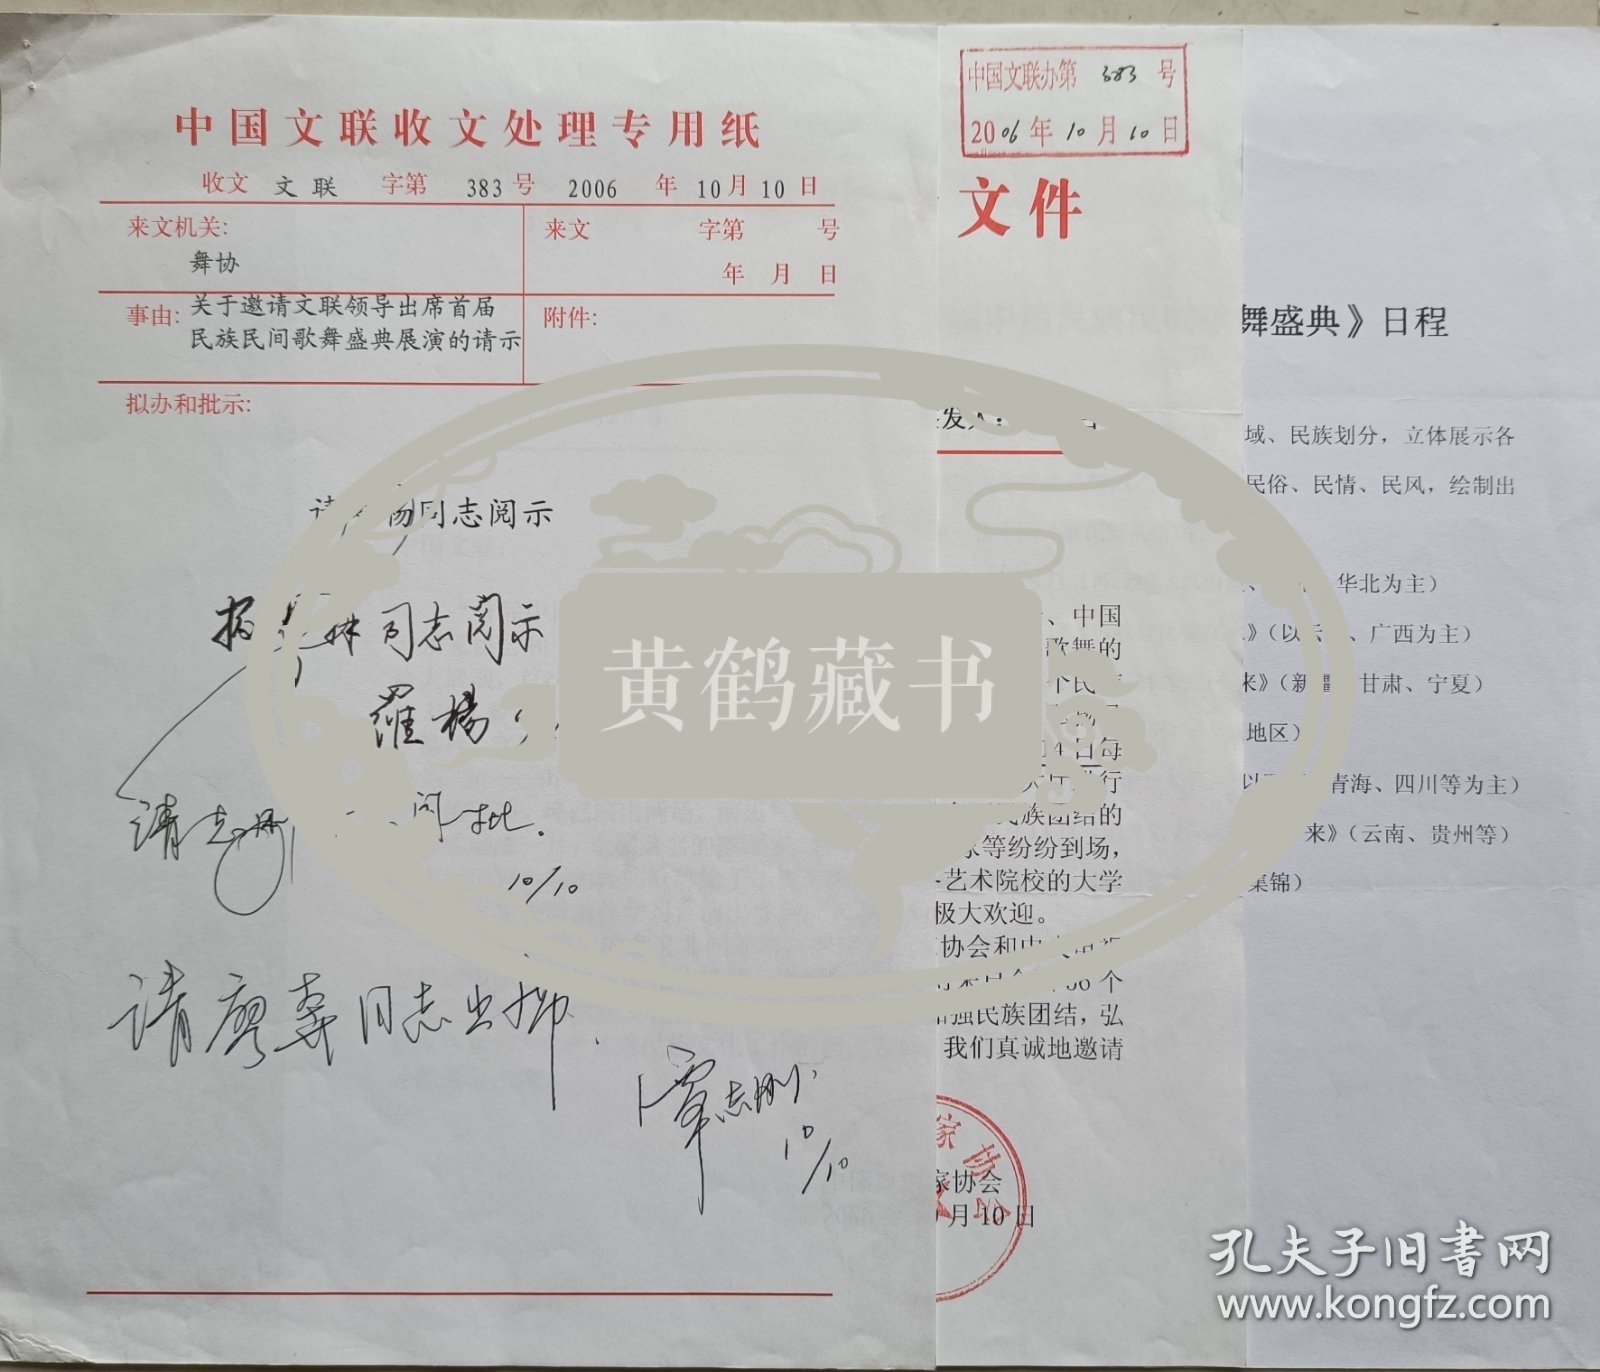 中国文联收文处理专用纸
收文 文联 字第 383 号 2006 年 10 月 10 日
来文机关:
舞协
来文 字第 号
年 月 日
事由: 关于邀请文联领导出席首届
民族民间歌舞盛典展演的请示
附件:
拟办和批示:
同志阅示
同志阅示
羅楊
请志刚 阅批.
10/10
请廖奔同志出席.
覃志刚
10/10
中国文联办第 383 号
2006年10月10日
文件
、中国
歌舞的
个民
4日每
行
民族团结的
家等纷纷到场,
艺术院校的大学
极大欢迎。
协会和中
56个
强民族团结,弘
我们真诚地邀请
家协会
月10日
家协会
舞盛典》日程
域、民族划分,立体展示各
民俗、民情、民风,绘制出
华北为主)
》(以云 、广西为主)
来》(新疆、甘肃、宁夏)
地区)
青海、四川等为主)
来》(云南、贵州等)
集锦)
黄鹤藏书
孔夫子旧书网
www.kongfz.com